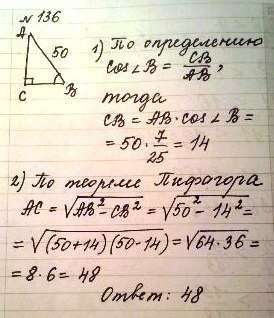 № 136
A
50
C
B
1) По определению
cos∠B = CB/AB,
тогда
CB = AB·cos∠B =
= 50·7/25 = 14
2) По теореме Пифагора
AC = √(AB² − CB²) = √(50² − 14²) =
= √((50+14)(50−14)) = √(64·36) =
= 8·6 = 48
Ответ: 48